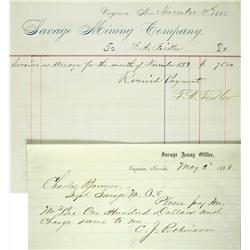 Virginia, Nev. November 30th 1883
Savage Mining Company,
To F. M. Fiedler Dr.
Services in Assay for the month of November 1883 $ 75.00
Received Payment
F. M. Fiedler
Savage Assay Office,
Virginia, Nevada, May 2d 188
Charles Forman,
Supt. Savage M. Co.
Please pay Mr.
One Hundred Dollars and
Charge same to me
C. J. Robinson